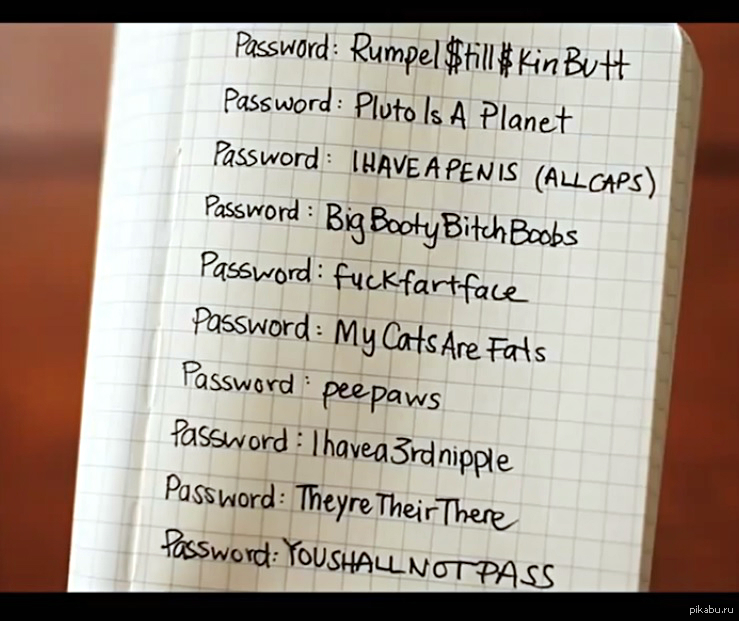 Password: Rumpel$till$kinButt
Password: Pluto Is A Planet
Password: IHAVEAPENIS (ALL CAPS)
Password: BigBootyBitchBoobs
Password: fuckfartface
Password: MyCatsAreFats
Password: peepaws
Password: Ihavea3rdnipple
Password: TheyreTheirThere
Password: YOUSHALLNOTPASS
pikabu.ru